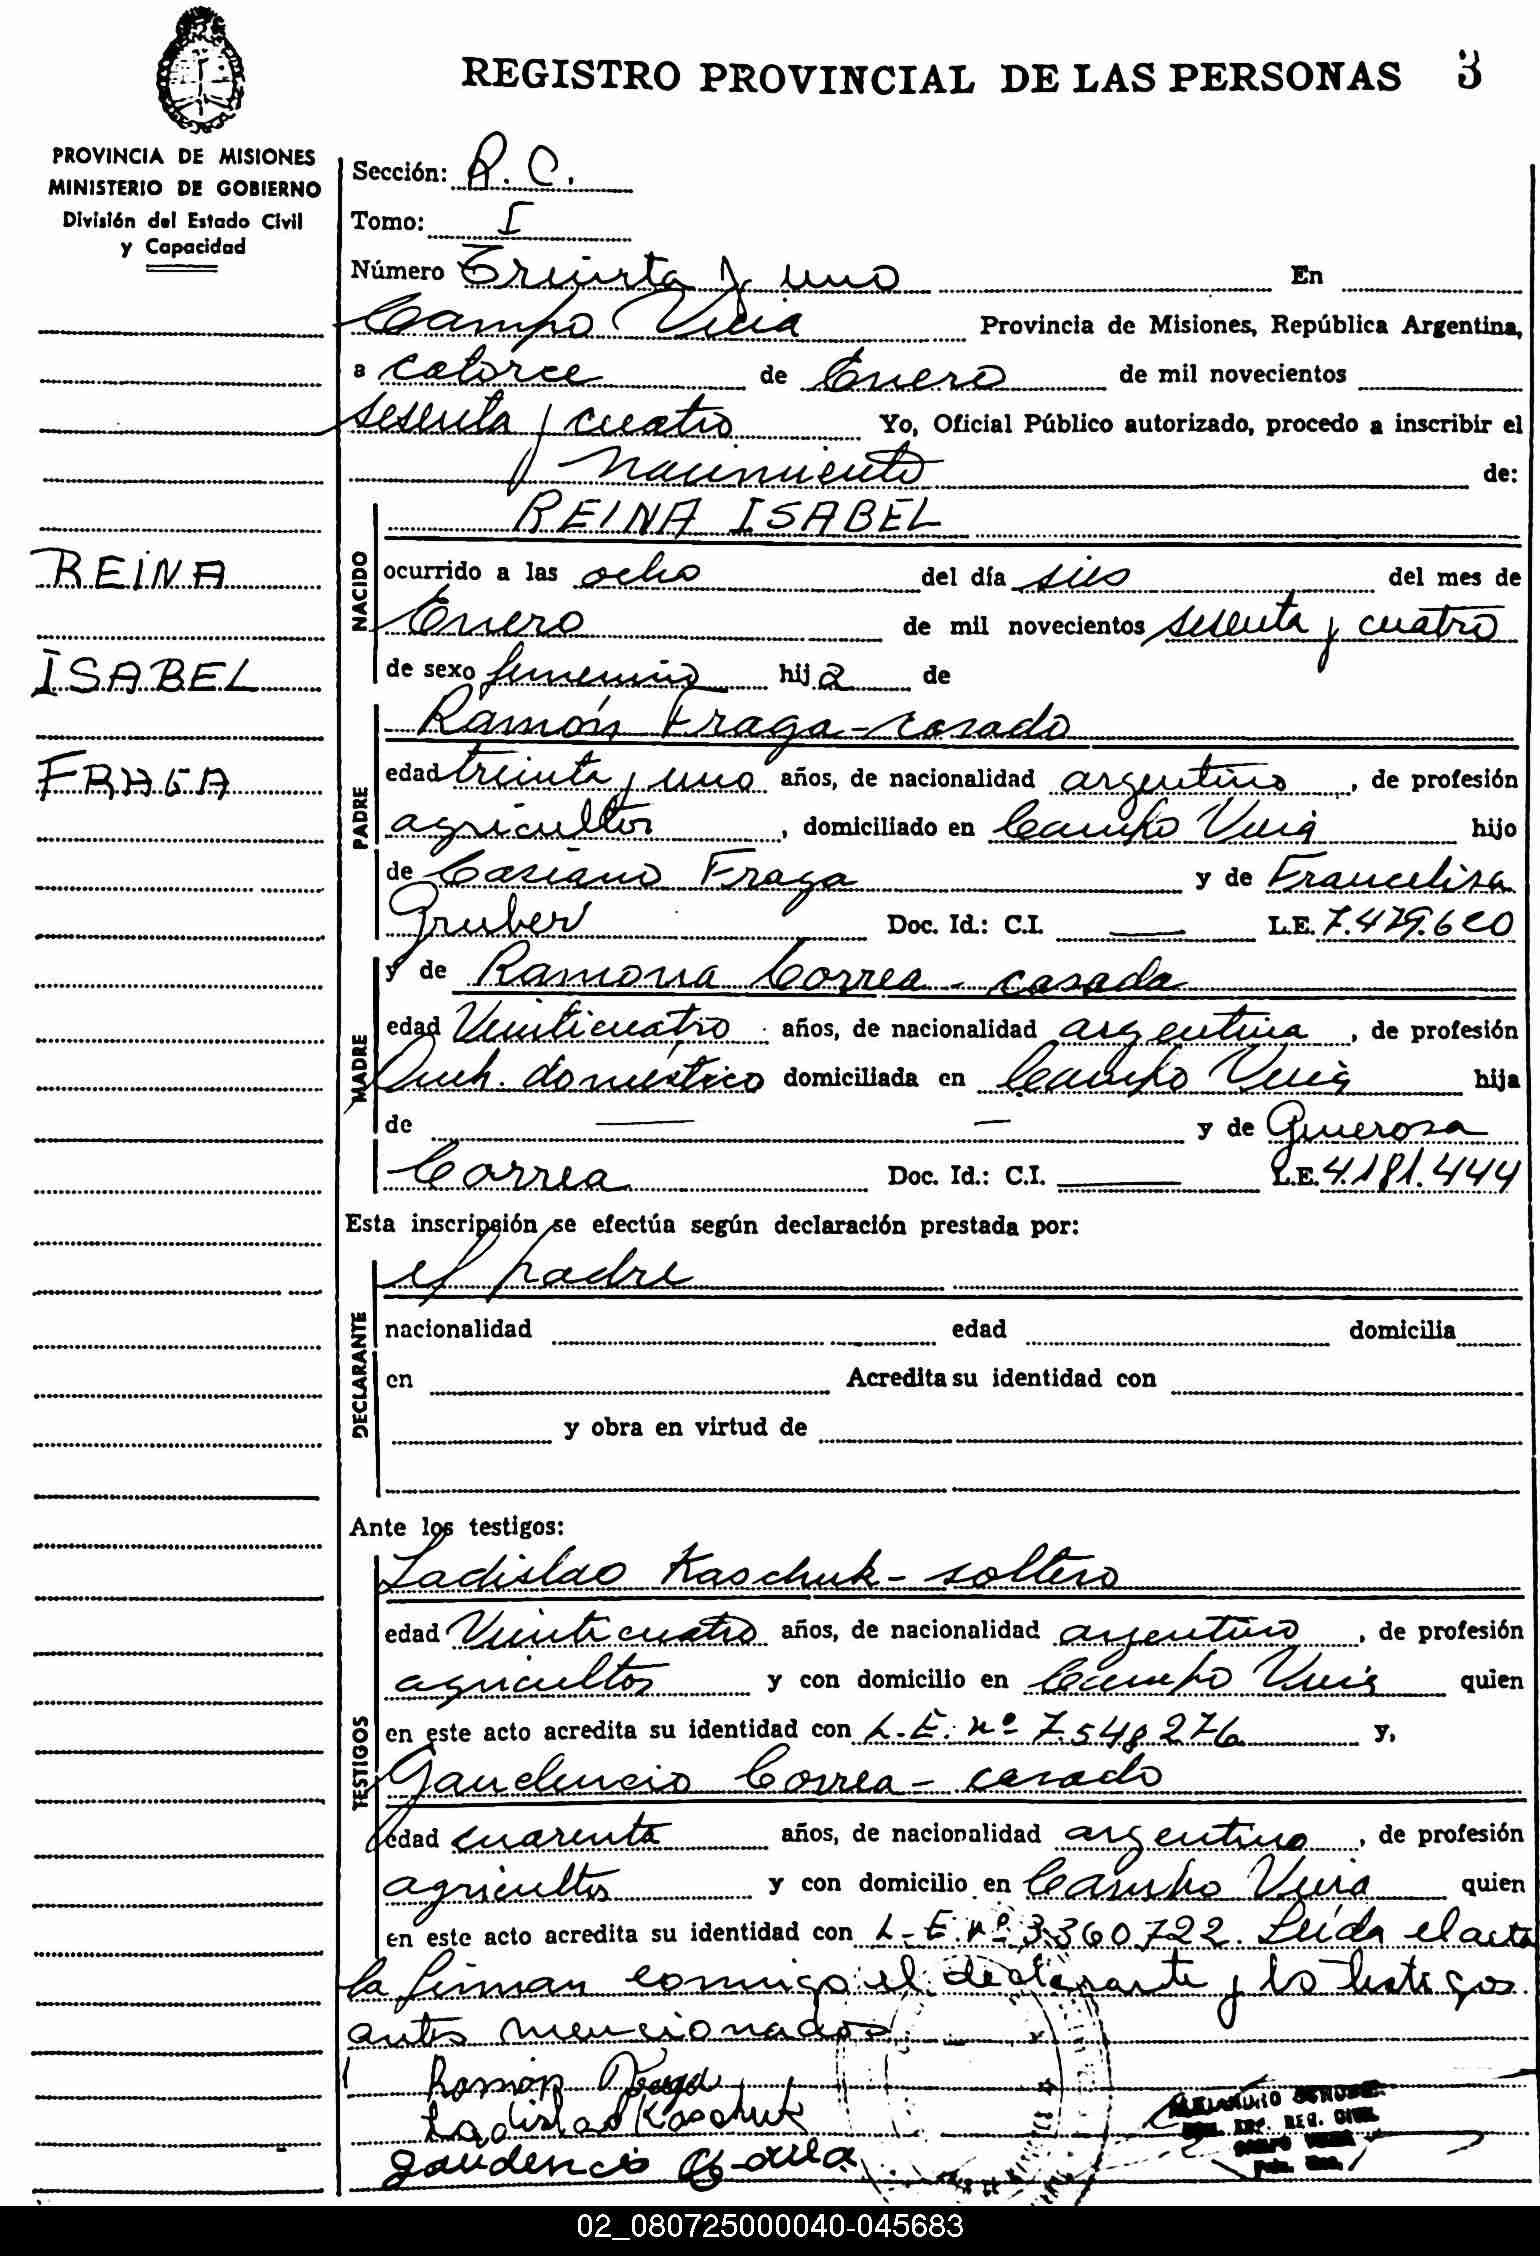 REGISTRO PROVINCIAL DE LAS PERSONAS 3
PROVINCIA DE MISIONES
MINISTERIO DE GOBIERNO
División del Estado Civil
y Capacidad
REINA
ISABEL
FRAGA
Sección: R. C.
Tomo: I
Número Treinta y uno En
Campo Viera Provincia de Misiones, República Argentina,
a catorce de Enero de mil novecientos
sesenta y cuatro Yo, Oficial Público autorizado, procedo a inscribir el
nacimiento de:
REINA ISABEL
NACIDO
ocurrido a las ocho del día seis del mes de
Enero de mil novecientos sesenta y cuatro
de sexo femenino hija de
Ramón Fraga - casado
PADRE
edad treinta y uno años, de nacionalidad argentino, de profesión
agricultor, domiciliado en Campo Viera hijo
de Casiano Fraga y de Francelisa
Gruber Doc. Id.: C.I. — L.E. 7.479.620
y de Ramona Correa - casada
MADRE
edad Veinticuatro años, de nacionalidad argentina, de profesión
Queh. doméstico domiciliada en Campo Viera hija
de — — y de Generosa
Correa Doc. Id.: C.I. — L.E. 4.181.444
Esta inscripsión se efectúa según declaración prestada por:
el padre
DECLARANTE
nacionalidad edad domicilia
en Acredita su identidad con
y obra en virtud de
Ante los testigos:
Ladislao Kaschuk - soltero
TESTIGOS
edad Veinticuatro años, de nacionalidad argentino, de profesión
agricultor y con domicilio en Campo Viera quien
en este acto acredita su identidad con L.E. nº 7.548.276 y,
Gaudencio Correa - casado
edad cuarenta años, de nacionalidad argentino, de profesión
agricultor y con domicilio en Campo Viera quien
en este acto acredita su identidad con L.E. nº 3.360.722. Leída el acta
la firman conmigo el declarante y los testigos
antes mencionados
Ramón Fraga
Ladislao Kaschuk
Gaudencio Correa
ALEJANDRO
REG. CIVIL
CAMPO VIERA
02_080725000040-045683